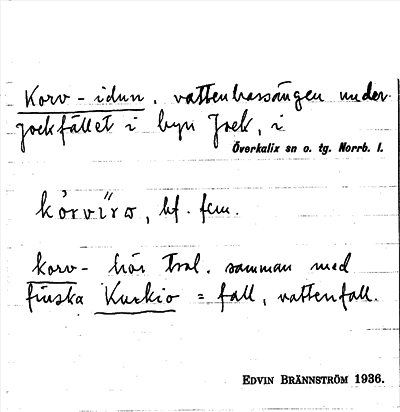 Korv-idun. vattenbassängen under
Jockfallet i byn Jock, i
Överkalix sn o. tg. Norrb. l.
bf. fem.
korv- hör trol. samman med
finska Kurkio = fall, vattenfall.
EDVIN BRÄNNSTRÖM 1936.